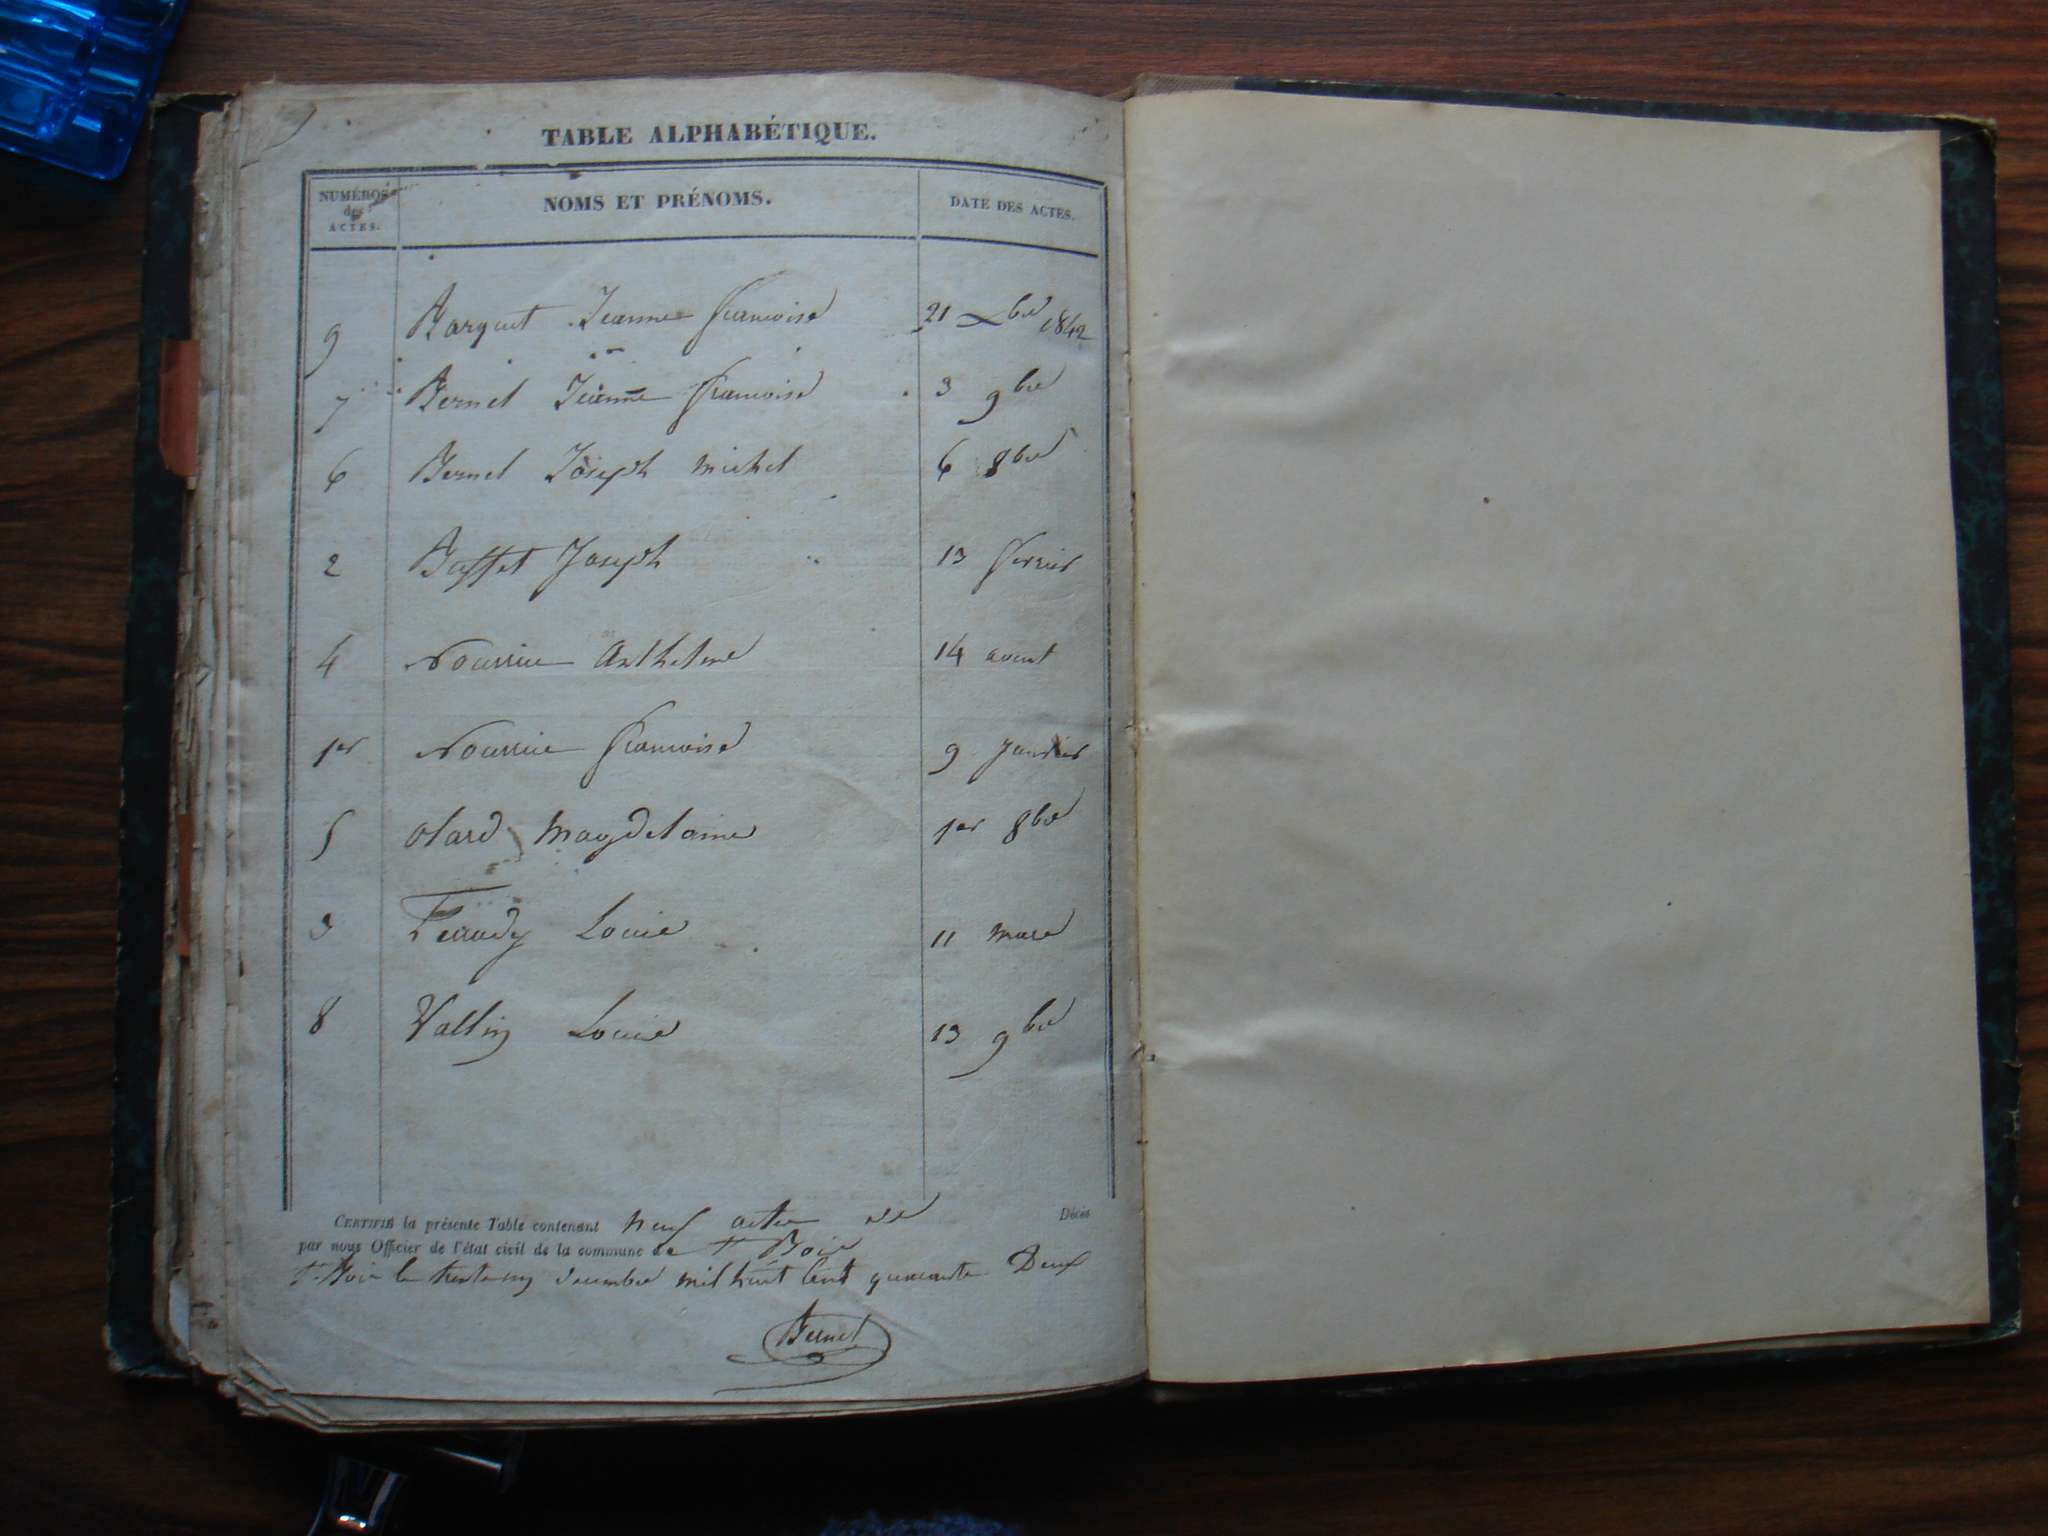 TABLE ALPHABÉTIQUE.
NUMÉROS des ACTES. NOMS ET PRÉNOMS. DATE DES ACTES.
9 Barquet Jeanne françoise 21 Xbre 1842
7 Bernet Jeanne françoise 3 9bre
6 Bernet Joseph michel 6 8bre
2 Buffet Joseph 13 fevrier
4 Nourrice Anthelme 14 aout
1er Nourrice françoise 9 janvier
5 olard Magdelaine 1er 8bre
3 Louise 11 mars
8 Vallin Louise 13 9bre
CERTIFIÉ la présente Table contenant neuf actes de Décès
par nous Officier de l'état civil de la commune de St Bois
St Bois le trente un decembre mil huit cent quarante Deux
Bernet